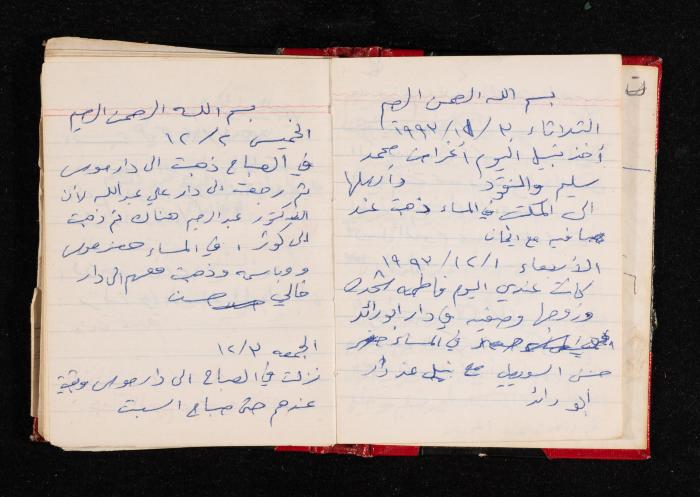 بسم الله الرحمن الرحيم
الثلاثاء ٣٠/١١/١٩٩٣
أخذ نبيل اليوم أغراض محمد
سليم والنقود وأرسلها
الى المكتب في المساء ذهبت عند
صافيه مع ايمان
الأربعاء ١/١٢/١٩٩٣
كانت عندي اليوم فاطمه
وزوجها وصفيه في دار ابو رائد
في المساء حضر
حسن السويطي مع نبيل عند دار
ابو رائد
بسم الله الرحمن الرحيم
الخميس ٢/١٢
في الصباح ذهبت الى دار موسى
ثم رجعت الى دار علي عبدالله لأن
الدكتور عبد الرحيم هناك ثم ذهبت
الى كوثر، في المساء حضر موسى
وذهبت معهم الى دار
خالي حسن
الجمعه ٣/١٢
نزلت في الصباح الى دار موسى وبقيت
عندهم حتى صباح السبت